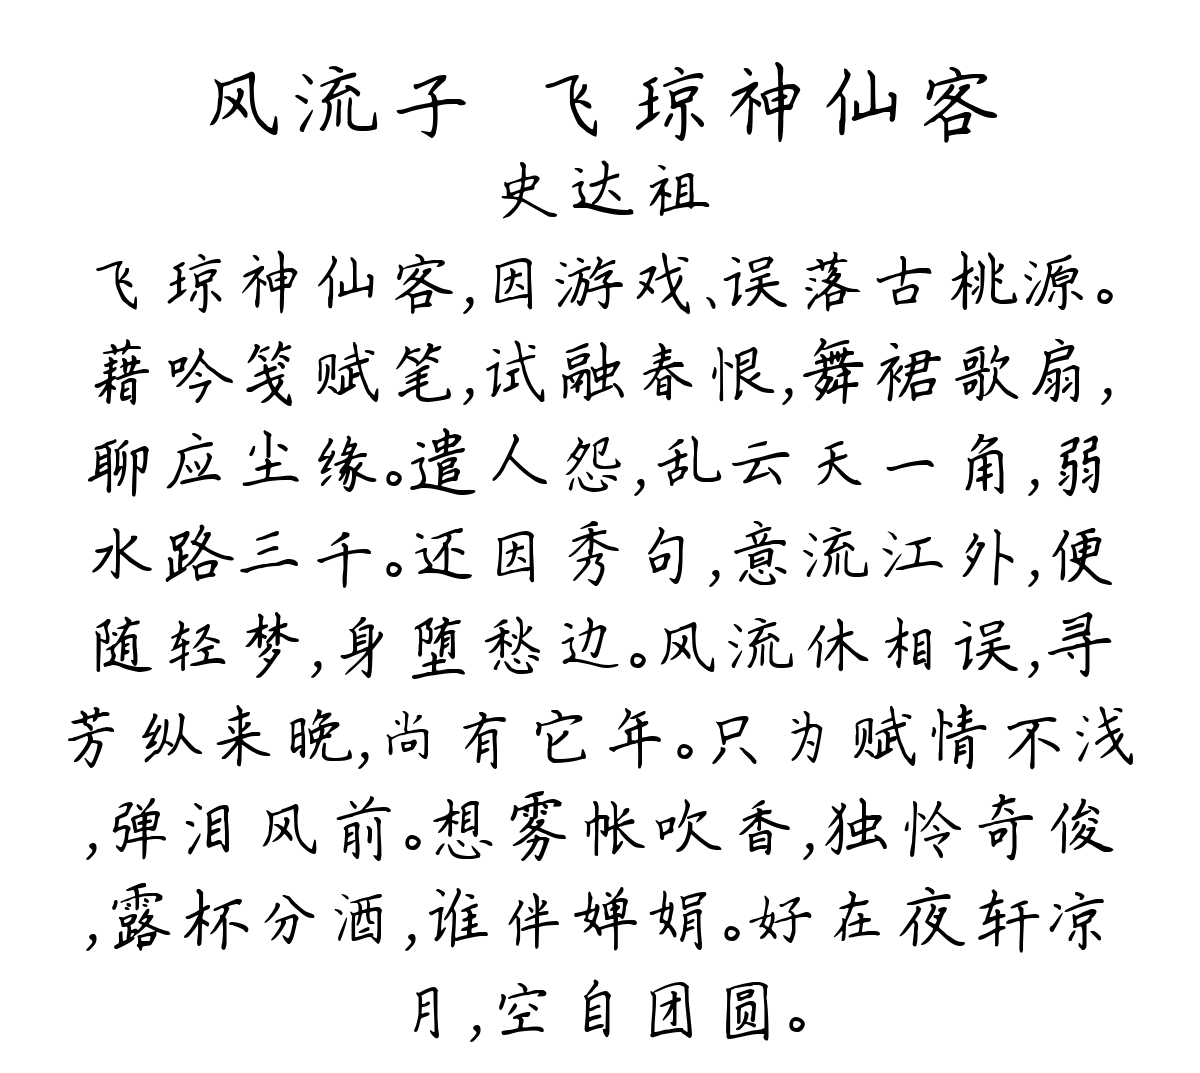 风流子 飞琼神仙客
史达祖
飞琼神仙客,因游戏、误落古桃源。
藉吟笺赋笔,试融春恨,舞裙歌扇,
聊应尘缘。遣人怨,乱云天一角,弱
水路三千。还因秀句,意流江外,便
随轻梦,身堕愁边。风流休相误,寻
芳纵来晚,尚有它年。只为赋情不浅
,弹泪风前。想雾帐吹香,独怜奇俊
,露杯分酒,谁伴婵娟。好在夜轩凉
月,空自团圆。